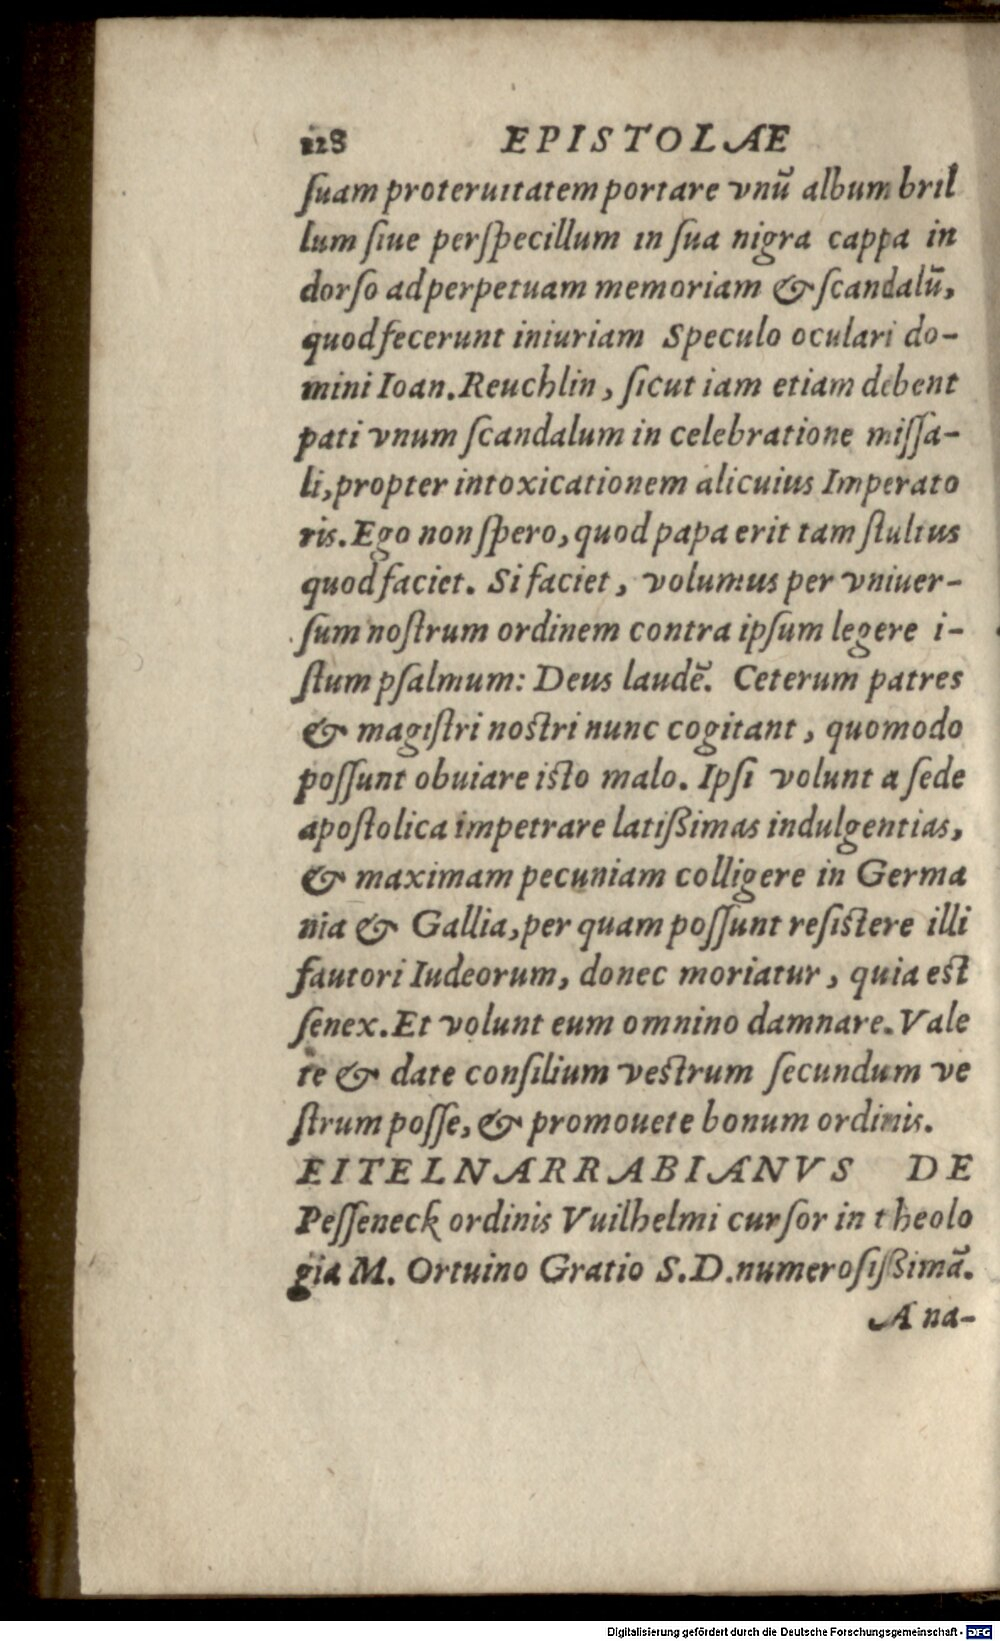 128 EPISTOLAE
ſuam proteruitatem portare vnū album bril
lum ſiue perſpecillum in ſua nigra cappa in
dorſo ad perpetuam memoriam & ſcandalū,
quod fecerunt iniuriam Speculo oculari do-
mini Ioan. Reuchlin, ſicut iam etiam debent
pati vnum ſcandalum in celebratione miſſa-
li, propter intoxicationem alicuius Imperato
ris. Ego non ſpero, quod papa erit tam ſtultus
quod faciet. Si faciet, volumus per vniuer-
ſum noſtrum ordinem contra ipſum legere i-
ſtum pſalmum: Deus laudē. Ceterum patres
& magiſtri noſtri nunc cogitant, quomodo
poſſunt obuiare iſto malo. Ipſi volunt a ſede
apoſtolica impetrare latißimas indulgentias,
& maximam pecuniam colligere in Germa
nia & Gallia, per quam poſſunt reſiſtere illi
fautori Iudeorum, donec moriatur, quia eſt
ſenex. Et volunt eum omnino damnare. Vale
te & date conſilium veſtrum ſecundum ve
ſtrum poſſe, & promouete bonum ordinis.
EITELNARRABIANVS DE
Peſſeneck ordinis Vuilhelmi curſor in theolo
gia M. Ortuino Gratio S.D. numeroſißimā.
A na-
Digitalisierung gefördert durch die Deutsche Forschungsgemeinschaft - DFG